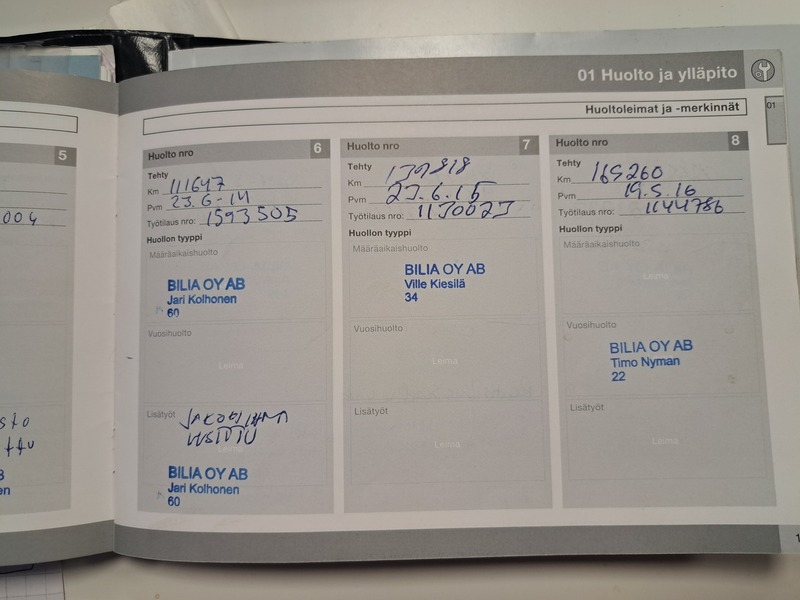 01 Huolto ja ylläpito
01
Huoltoleimat ja -merkinnät
5
004
Huolto nro 6
Tehty
Km 111647
Pvm 23.6-14
Työtilaus nro: 1593505
Huollon tyyppi
Määräaikaishuolto
BILIA OY AB
Jari Kolhonen
60
Vuosihuolto
Leima
Lisätyöt JAKOHIHNA
UUSITTU
Leima
BILIA OY AB
Jari Kolhonen
60
Huolto nro 7
Tehty
Km 139818
Pvm 23.6.15
Työtilaus nro: 1130023
Huollon tyyppi
Määräaikaishuolto
BILIA OY AB
Ville Kiesilä
34
Vuosihuolto
Leima
Lisätyöt
Leima
Huolto nro 8
Tehty
Km 165260
Pvm 19.5.16
Työtilaus nro: 1144786
Huollon tyyppi
Määräaikaishuolto
Leima
Vuosihuolto
BILIA OY AB
Timo Nyman
22
Lisätyöt
Leima